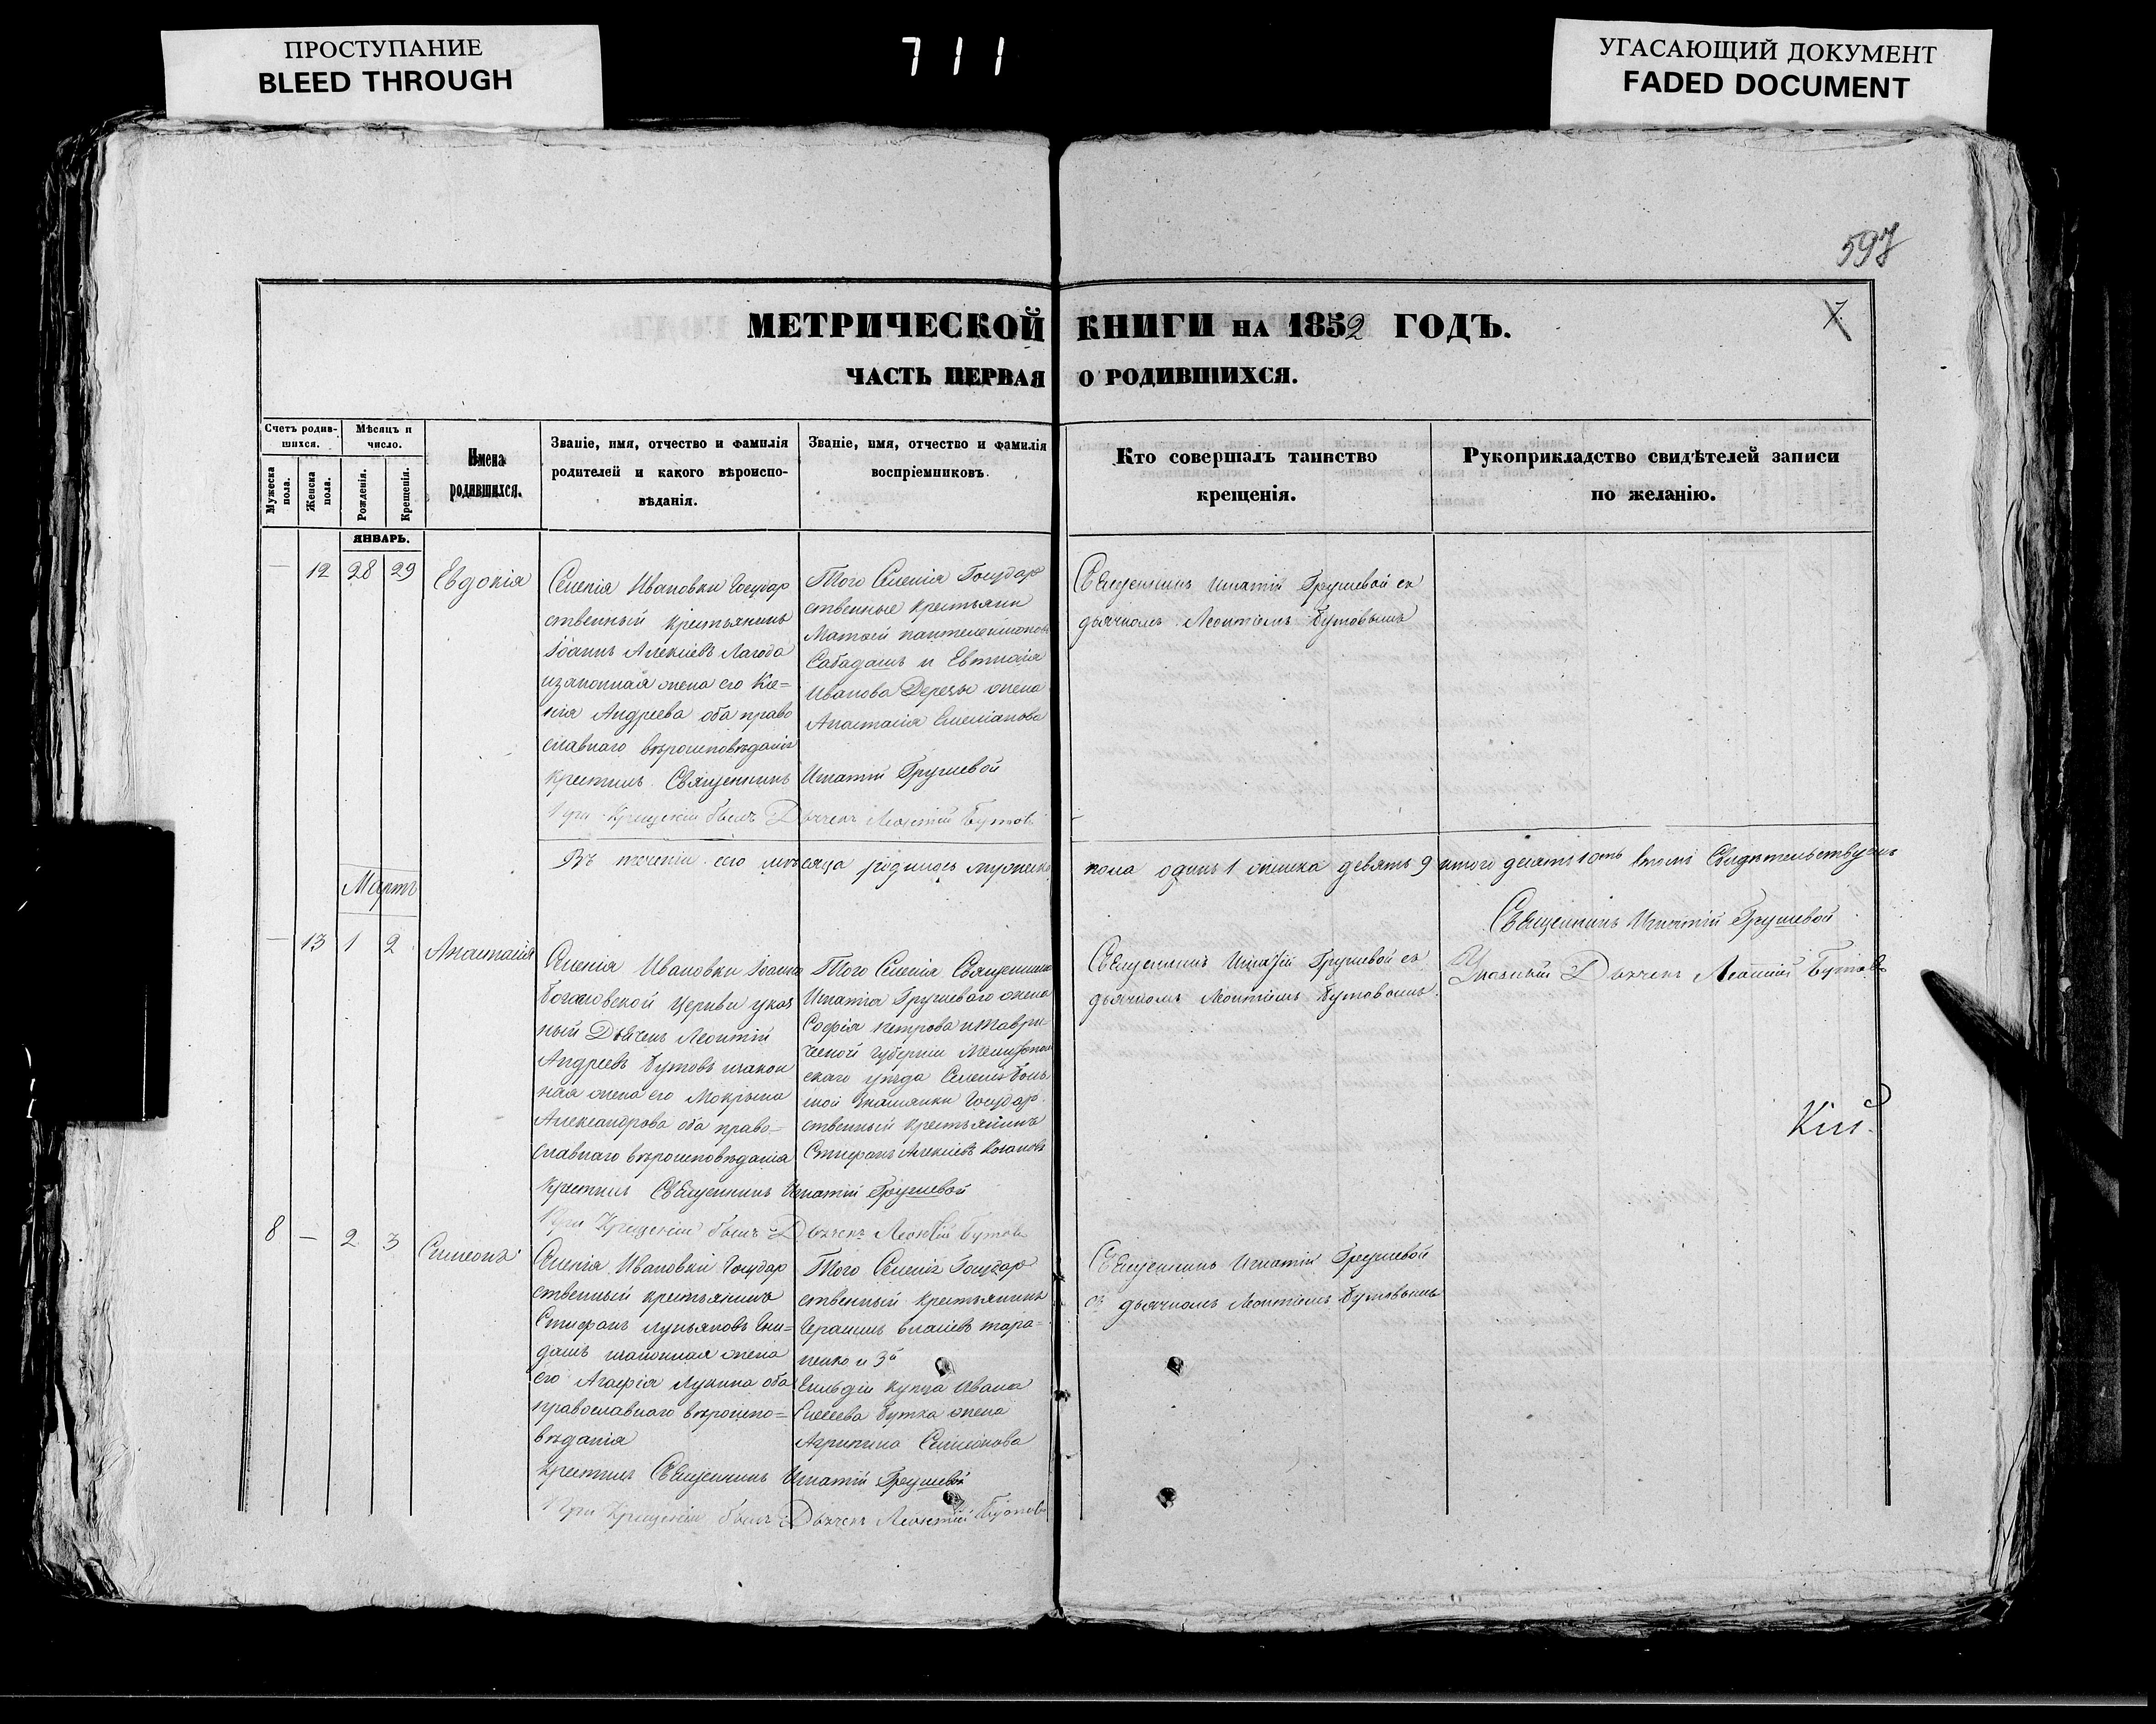 ПРОСТУПАНИЕ
BLEED THROUGH
711
УГАСАЮЩИЙ ДОКУМЕНТ
FADED DOCUMENT
597
7
МЕТРИЧЕСКОЙ КНИГИ НА 1852 ГОДЪ.
ЧАСТЬ ПЕРВАЯ О РОДИВШИХСЯ.
Счетъ родив-
шихся.
Мужеска
пола.
Женска
пола.
Мѣсяцъ и
число.
Рожденія.
Крещенія.
Имена
родившихся.
Званіе, имя, отчество и фамилія
родителей и какого вѣроиспо-
вѣданія.
Званіе, имя, отчество и фамилія
воспріемниковъ.
Кто совершалъ таинство
крещенія.
Рукоприкладство свидѣтелей записи
по желанію.
ЯНВАРЬ.
— 12 28 29
Евдокія
Селенія Ивановки Государ
ственный крестьянинъ
Іоаннъ Алексіевъ Лагода
изаконная жена его Ксе=
нія Андреева оба право
славнаго вѣроисповѣданія
Того Селенія Государ
ственные крестьяни
Матвей пантелеймоновъ
Сабадашъ и Евтихія
Иванова жена
Анастасія Емеліанова
крестилъ Священникъ Игнатій Грушевой
При Крещеніи былъ Дьячекъ Леонтій Бутовъ
Священникъ Игнатій Грушевой съ
дьячкомъ Леонтіемъ Бутовымъ
Въ теченіи сего мѣсяца родилось мужеска пола одинъ 1 женска девять 9 итого десять 10ть втомъ Свидѣтельствуемъ
Священникъ Игнатій Грушевой
Указный Дьячекъ Леонтій Бутовъ
Мартъ
— 13 1 2
Анастасія
Селенія Ивановки Іоанно
Богословской Церкви указ
ный Дьячекъ Леонтій
Андреевъ Бутовъ изакон
ная жена его Мокрина
Александрова оба право=
славнаго вѣроисповѣданія
Того Селенія Священника
Игнатія Грушеваго жена
Софія петрова итаври-
ческой губерніи Мелитополь
скаго уѣзда Селенія Боль
шой Знаменки Государ
ственный крестьянинъ
Стефанъ Алексіевъ
крестилъ Священникъ Игнатій Грушевой
При Крещеніи былъ Дьячекъ Леонтій Бутовъ
Священникъ Игнатій Грушевой съ
дьячкомъ Леонтіемъ Бутовымъ
8 — 2 3
Симеонъ
Селенія Ивановки Государ
ственный крестьянинъ
Стефанъ Лукьяновъ
изаконная жена
его Агафія Лукина оба
православнаго вѣроиспо=
вѣданія
Того Селенія Государ
ственный крестьянинъ
Герасимъ власіевъ тара=
ненко и 3й
Гильдіи купца Ивана
Бутка жена
Агрипина Симеонова
крестилъ Священникъ Игнатій Грушевой
При Крещеніи былъ Дьячекъ Леонтій Бутовъ
Священникъ Игнатій Грушевой
съ дьячкомъ Леонтіемъ Бутовымъ